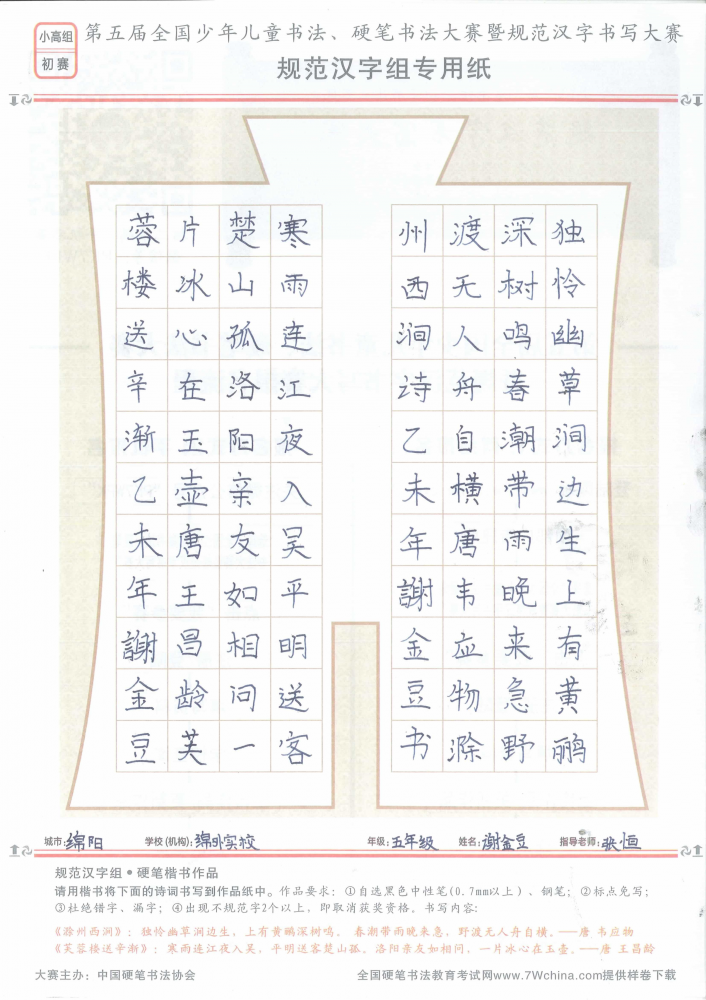 小高组
初赛
第五届全国少年儿童书法、硬笔书法大赛暨规范汉字书写大赛
规范汉字组专用纸
独怜幽草涧边生上有黄鹂
深树鸣春潮带雨晚来急野
渡无人舟自横唐韦应物滁
州西涧诗乙未年謝金豆书
寒雨连江夜入吴平明送客
楚山孤洛阳亲友如相问一
片冰心在玉壶唐王昌龄芙
蓉楼送辛渐乙未年謝金豆
城市:绵阳 学校(机构):绵外实校 年级:五年级 姓名:谢金豆 指导老师:张恒
规范汉字组●硬笔楷书作品
请用楷书将下面的诗词书写到作品纸中。作品要求：①自选黑色中性笔(0.7mm以上)、钢笔；②标点免写；
③杜绝错字、漏字；④出现不规范字2个以上，即取消获奖资格。书写内容：
《滁州西涧》：独怜幽草涧边生，上有黄鹂深树鸣。春潮带雨晚来急，野渡无人舟自横。——唐 韦应物
《芙蓉楼送辛渐》：寒雨连江夜入吴，平明送客楚山孤。洛阳亲友如相问，一片冰心在玉壶。——唐 王昌龄
大赛主办：中国硬笔书法协会 全国硬笔书法教育考试网www.7Wchina.com提供样卷下载